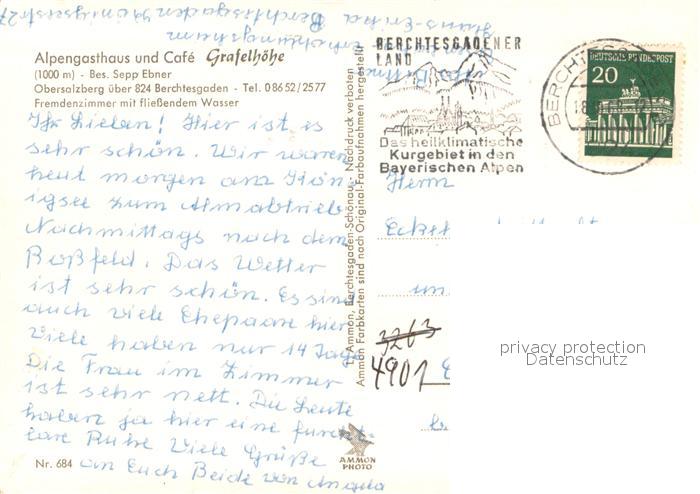 Alpengasthaus und Café Grafelhöhe
(1000 m) - Bes. Sepp Ebner
Obersalzberg über 824 Berchtesgaden - Tel. 0 86 52 / 2577
Fremdenzimmer mit fließendem Wasser
Ihr Lieben! Hier ist es
sehr schön. Wir waren
heut morgen am Kön
igsee zum Almabtrieb
Nachmittags nach dem
Roßfeld. Das Wetter
ist sehr schön. Es sind
auch viele Ehepaare hier
Viele haben nur 14 Tage
Die Frau im Zimmer
ist sehr nett. Die Leute
haben ja hier eine furcht-
bare Ruhe Viele Grüße
an Euch Beide von Angela
Nr. 684
Berchtesgaden Königseestr 27
Ammon, Berchtesgaden-Schönau - Nachdruck verboten
Ammon Farbkarten sind nach Original-Farbaufnahmen hergestellt
AMMON
PHOTO
BERCHTESGADENER
LAND
Das heilklimatische
Kurgebiet in den
Bayerischen Alpen
DEUTSCHE BUNDESPOST
20
Herrn
3263
4901
privacy protection
Datenschutz